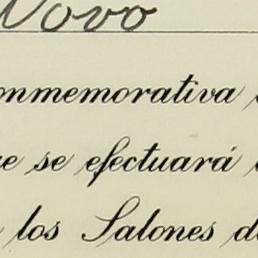 Novo
onmemorativa
ue se efectuará
los Salones de